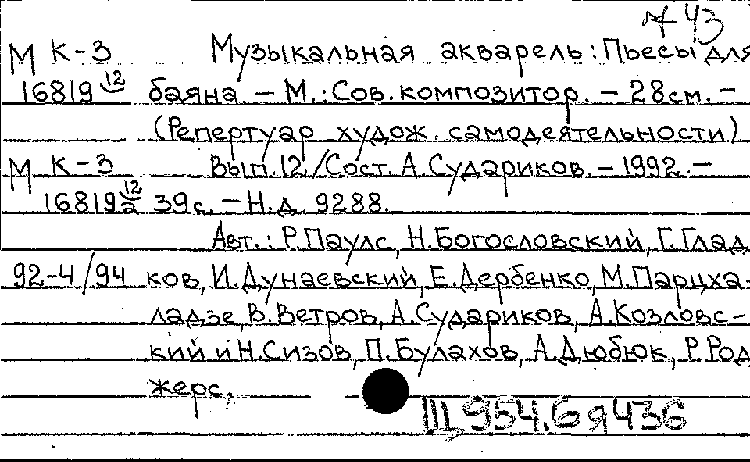 № 43
М К-3 Музыкальная акварель: Пьесы для
16819 12 баяна. – М.: Сов. композитор. – 28см. –
(Репертуар худож. самодеятельности)
М К-3 Вып. 12 / Сост. А. Судариков. – 1992. –
16819 12/2 39с. – Н.д. 9288.
Авт.: Р. Паулс, Н. Богословский, Г. Глад
92-4/94 ков, И. Дунаевский, Е. Дербенко, М. Парцха-
ладзе, В. Ветров, А. Судариков, А. Козловс-
кий и Н. Сизов, П. Булахов, А. Дюбюк, Р. Род
жерс,
Щ954.6я436